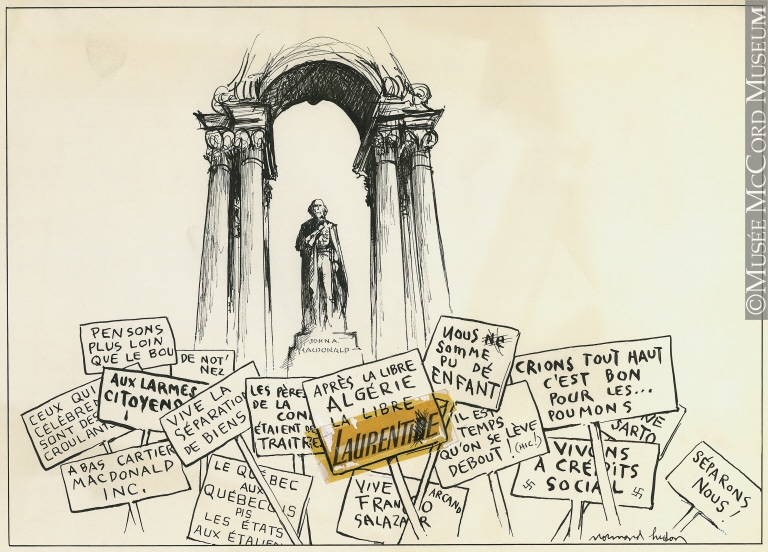 JOHN A.
MACDONALD
PENSONS
PLUS LOIN
QUE LE BOU
DE NOT'
NEZ
CEUX QUI
CÉLÈBRE
SONT DES
CROULANT
AUX LARMES
CITOYENS
!
A BAS CARTIER
MACDONALD
INC.
VIVE LA
SÉPARATION
DE BIENS
LE QUÉBEC
AUX
QUÉBECOIS
PIS
LES ÉTATS
AUX ÉTALIEN
LES PÈRES
DE LA
CON
ÉTAIENT DES
TRAITRE
APRÈS LA LIBRE
ALGÉRIE
LA LIBRE
LAURENTIE
VIVE
FRANCO
SALAZAR
ARCAND
NOUS NE
SOMME
PU DÉ
ENFANT
IL EST
TEMPS
QU'ON SE LÈVE
DEBOUT! (HIC!)
CRIONS TOUT HAUT
C'EST BON
POUR LES...
POUMONS
SARTO
VIVONS
À CRÉDITS
SOCIAL
SÉPARONS
NOUS!
normand hudon
©MUSÉE MCCORD MUSEUM